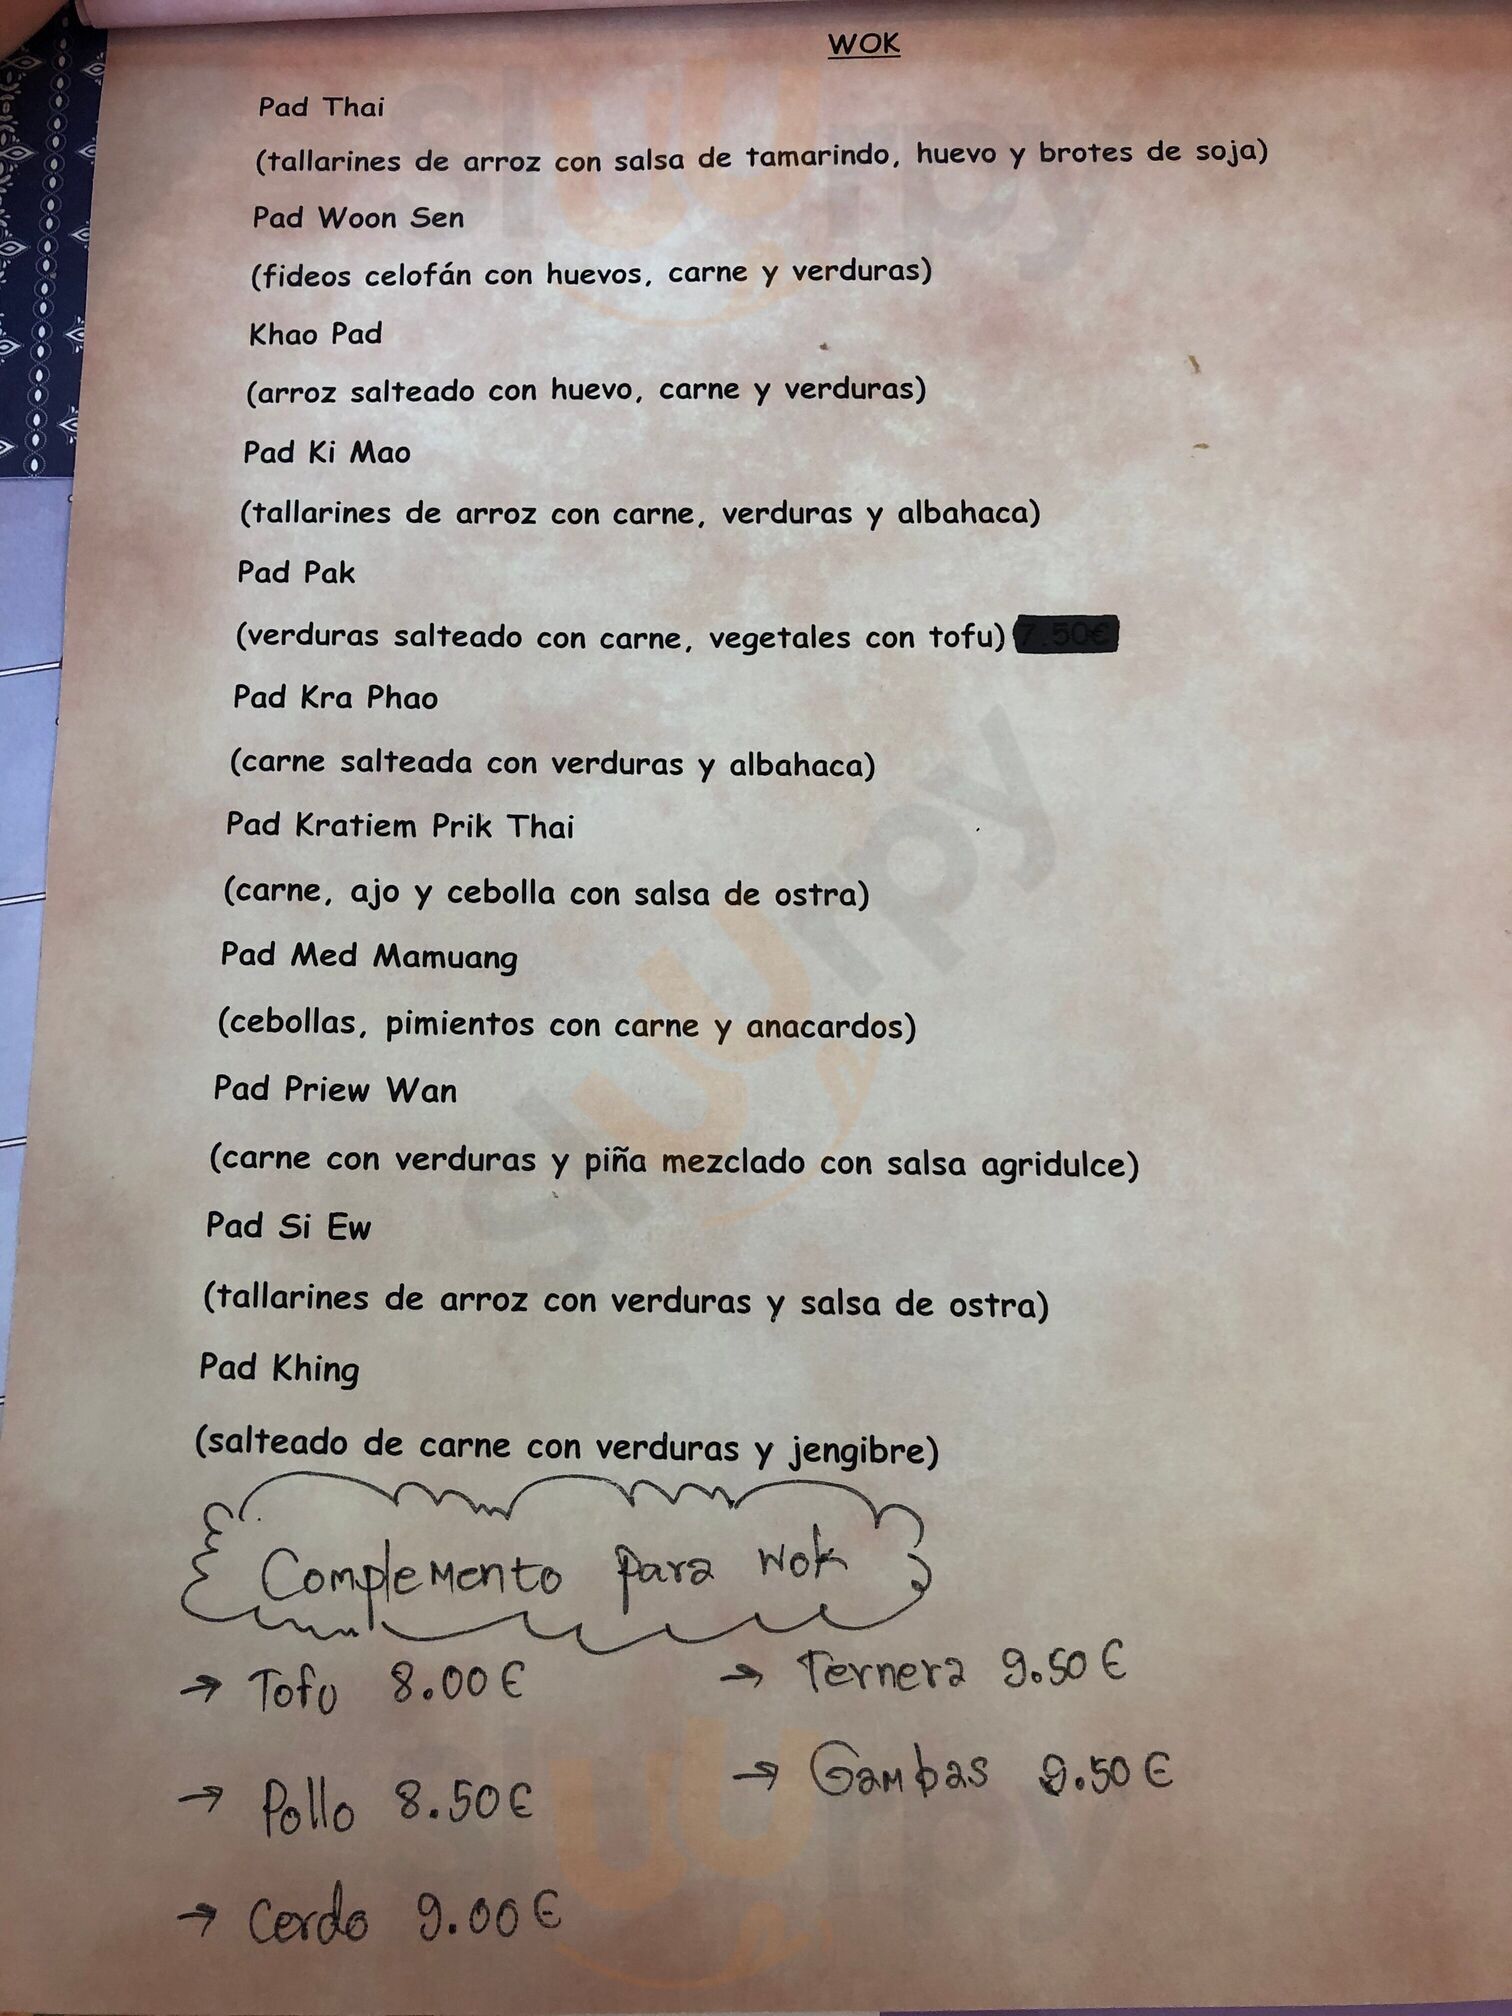 WOK
Pad Thai
(tallarines de arroz con salsa de tamarindo, huevo y brotes de soja)
Pad Woon Sen
(fideos celofán con huevos, carne y verduras)
Khao Pad
(arroz salteado con huevo, carne y verduras)
Pad Ki Mao
(tallarines de arroz con carne, verduras y albahaca)
Pad Pak
(verduras salteado con carne, vegetales con tofu) 7.50€
Pad Kra Phao
(carne salteada con verduras y albahaca)
Pad Kratiem Prik Thai
(carne, ajo y cebolla con salsa de ostra)
Pad Med Mamuang
(cebollas, pimientos con carne y anacardos)
Pad Priew Wan
(carne con verduras y piña mezclado con salsa agridulce)
Pad Si Ew
(tallarines de arroz con verduras y salsa de ostra)
Pad Khing
(salteado de carne con verduras y jengibre)
Complemento para wok
→ Tofu 8.00€
→ Ternera 9.50€
→ Pollo 8.50€
→ Gambas 9.50€
→ Cerdo 9.00€
sluurpy
sluurpy
sluurpy